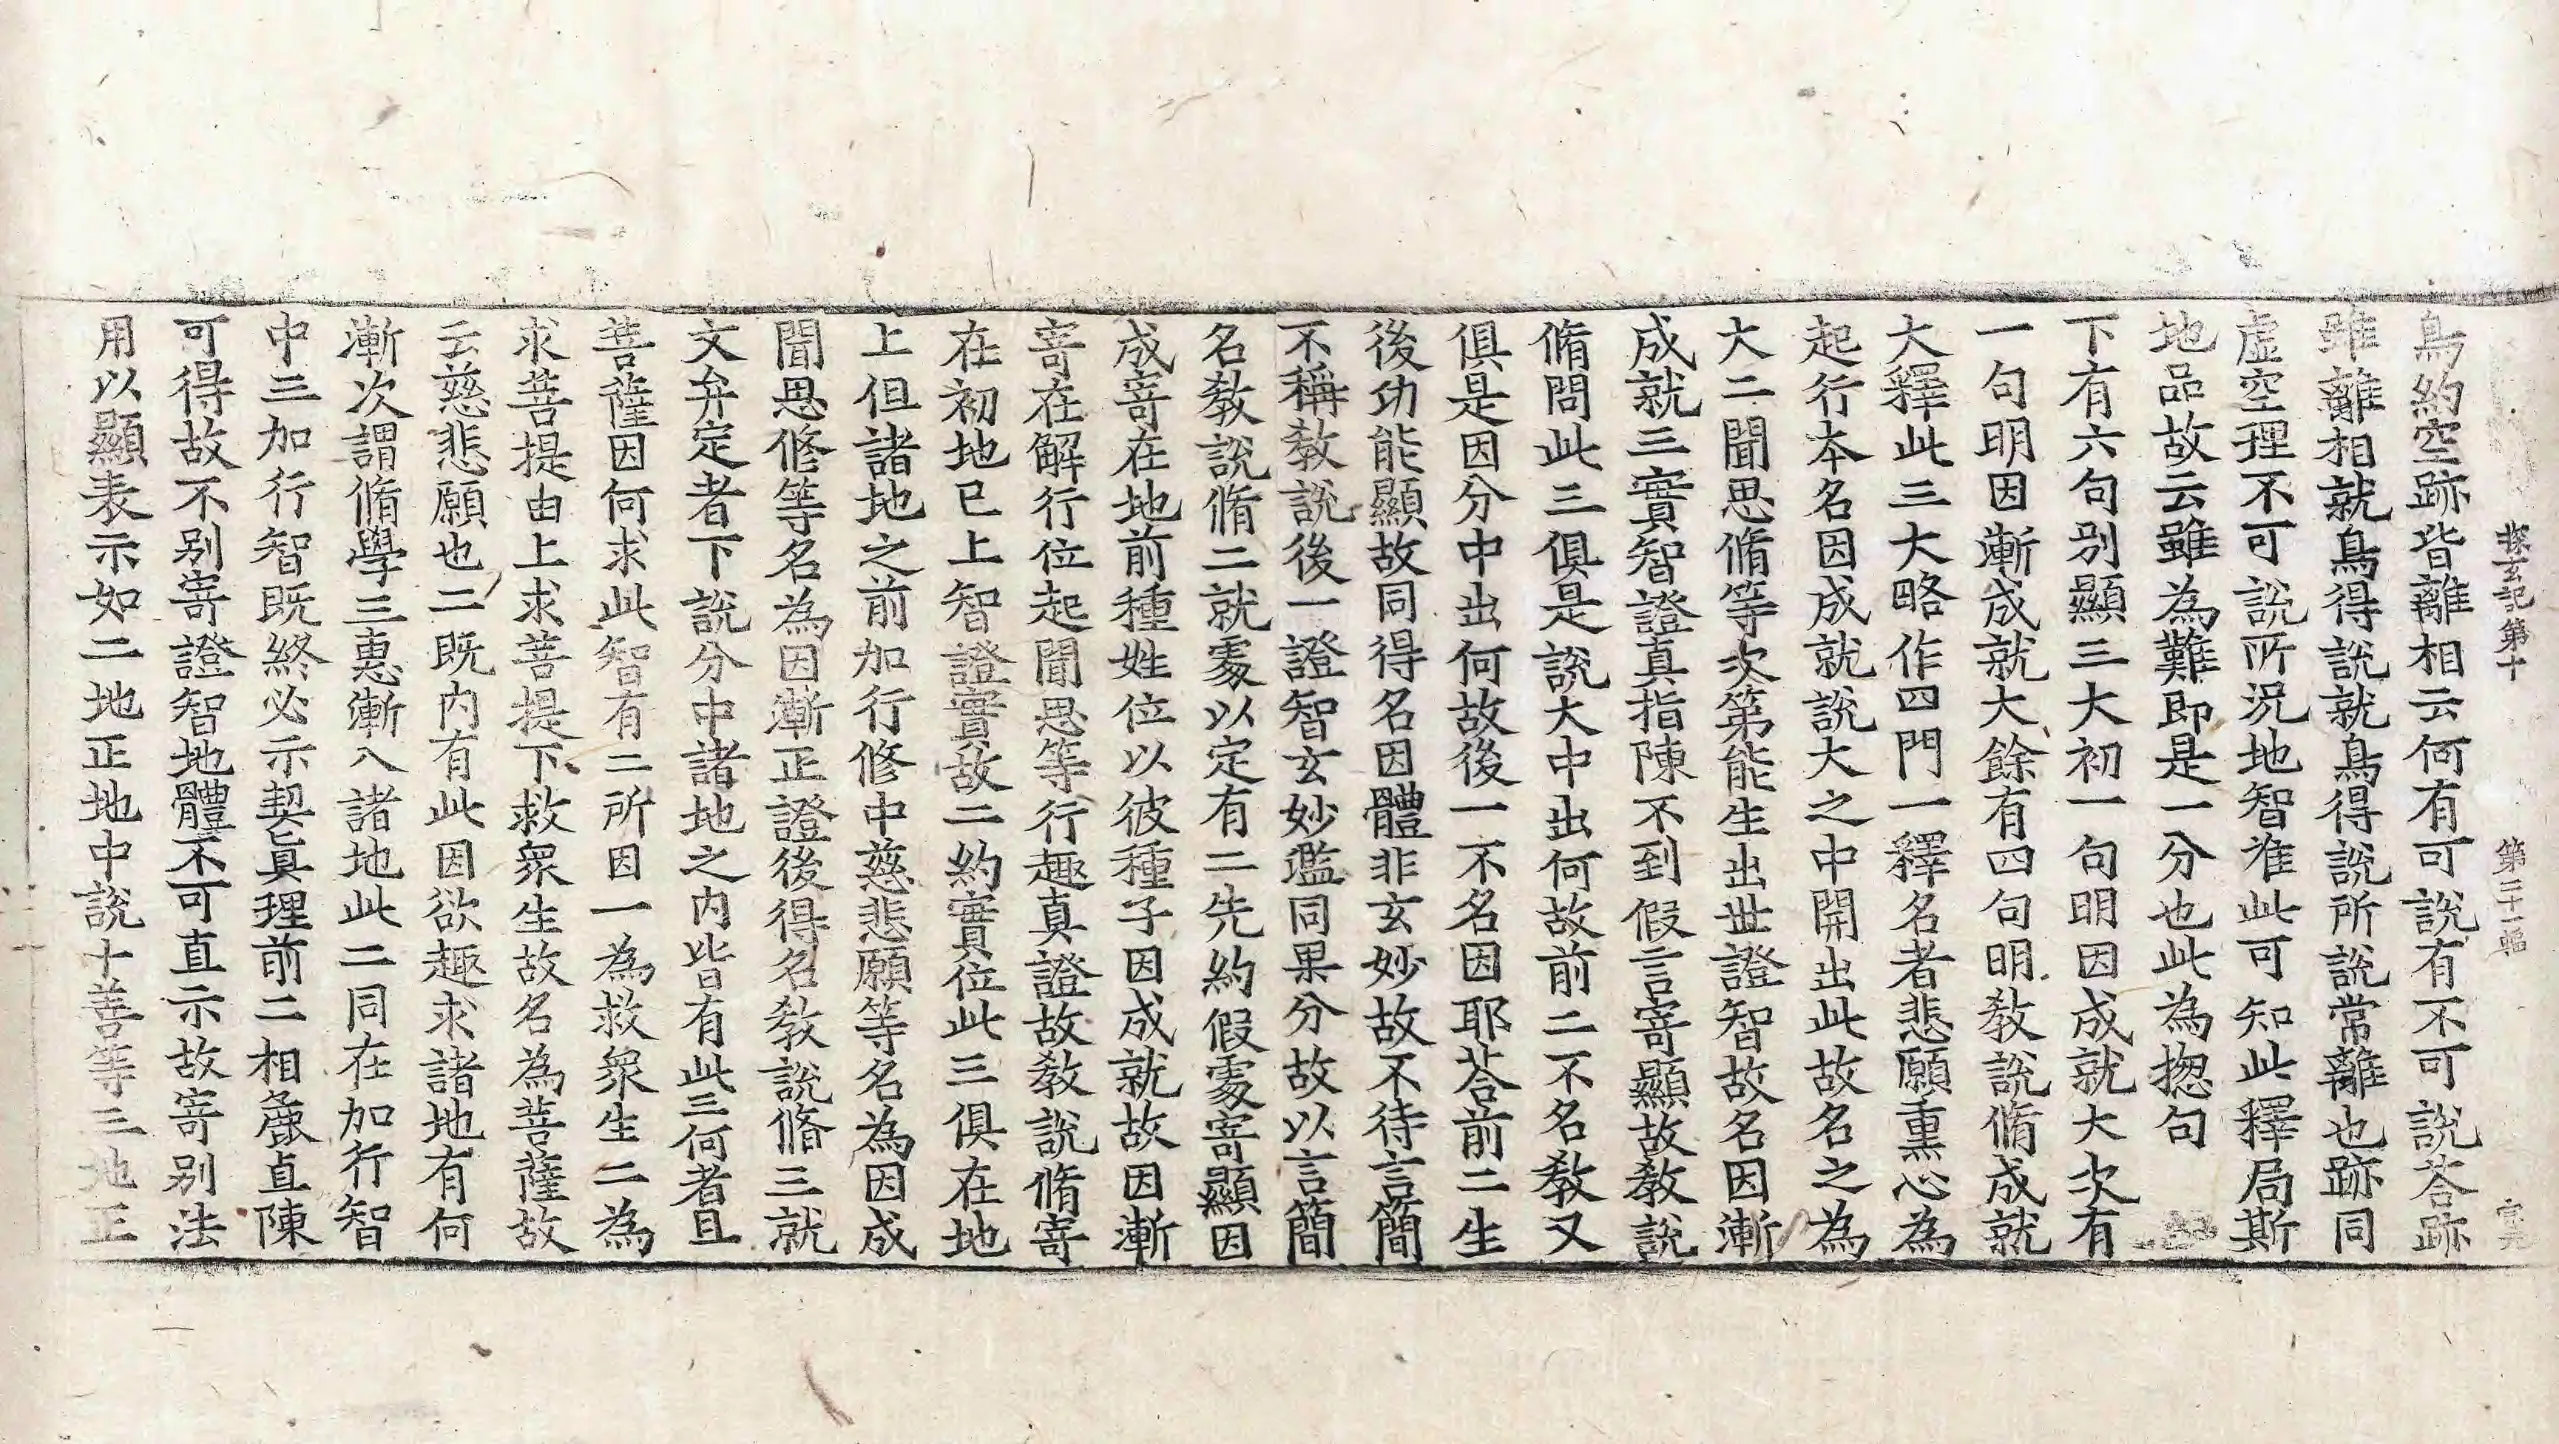 探玄記第十 第三十一幅
鳥約空跡皆離相云何有可說有不可說荅跡
雖離相就鳥得說就鳥得說所說常離也跡同
虛空理不可說所況地智准此可知此釋局斯
地品故云雖為難即是一分也此為揔句
下有六句別顯三大初一句明因成就大次有
一句明因漸成就大餘有四句明教說脩成就
大釋此三大略作四門一釋名者悲願熏心為
起行本名因成就說大之中開出此故名之為
大二聞思脩等次第能生出世證智故名因漸
成就三實智證真指陳不到假言寄顯故教說
脩問此三俱是說大中出何故前二不名教又
俱是因分中出何故後一不名因耶荅前二生
後功能顯故同得名因體非玄妙故不待言簡
不稱教說後一證智玄妙濫同果分故以言簡
名教說脩二就處以定有二先約假處寄顯因
成寄在地前種姓位以彼種子因成就故因漸
寄在解行位起聞思等行趣真證故教說脩寄
在初地已上智證實故二約實位此三俱在地
上但諸地之前加行修中慈悲願等名為因成
聞思修等名為因漸正證後得名教說脩三就
文弁定者下說分中諸地之內皆有此三何者且
菩薩因何求此智有二所因一為救衆生二為
求菩提由上求菩提下救衆生故名為菩薩故
云慈悲願也二既內有此因欲趣求諸地有何
漸次謂脩學三惠漸入諸地此二同在加行智
中三加行智既終必示契真理前二相麁直陳
可得故不別寄證智地體不可直示故寄別法
用以顯表示如二地正地中說十善等三地正